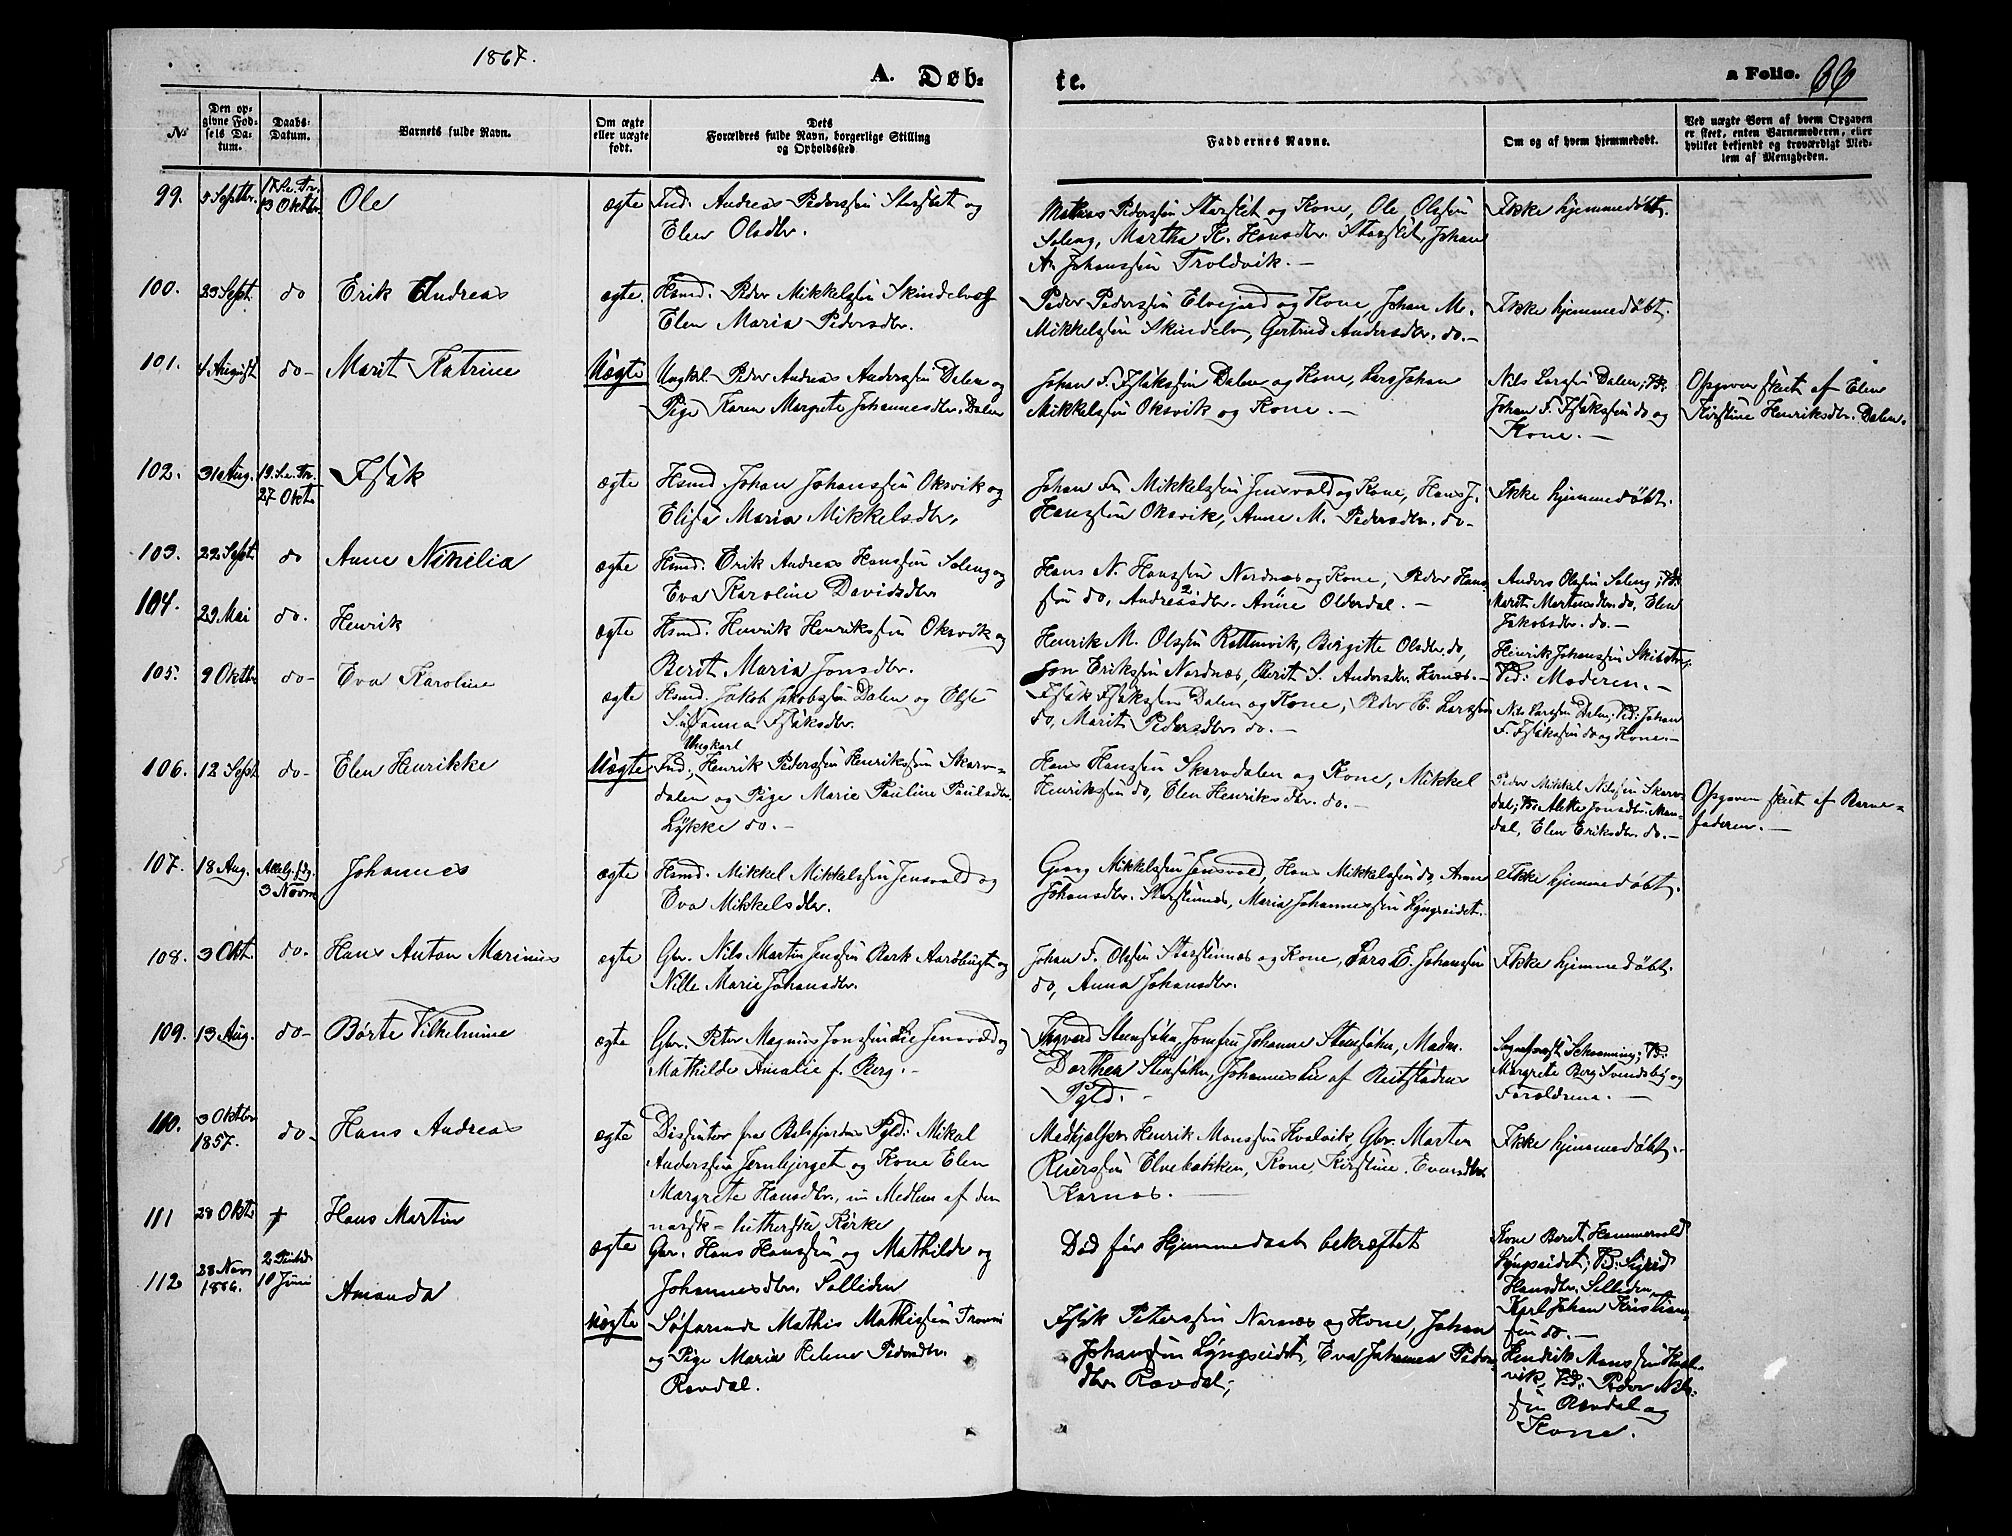 1867.
A. Døb-
te.
a Folio. 66
No
Den op-
givne Fød-
sels Da-
tum.
Daabs-
Datum.
Barnets fulde Navn.
Om ægte
eller uægte
født.
Dets
Forældres fulde Navn, borgerlige Stilling
og Opholdssted
Faddernes Navne.
Om og af hvem hjemmedøbt.
Ved uægte Børn af hvem Opgaven
er skeet, enten Barnemoderen, eller
hvilket bekjendt og troværdigt Med-
lem af Menigheden.
99.
5 Septbr.
17 S. e. Tr.
13 Oktbr.
Ole
ægte
Ind. Andreas Pedersen Storslet og
Elen Olsdtr.
Mathis Pedersen Storslet og Kone, Ole Olsen
Soleng, Martha K. Hansdtr. Storslet, Johan
A. Johansen Troldvik. –
Ikke hjemmedøbt.
100.
23 Sept.
do
Erik Andreas
ægte
Hsmd. Peder Mikkelsen Skindelv og
Elen Maria Pedersdtr.
Peder Pedersen Elvejord og Kone, Johan M.
Mikkelsen Skindelv, Gertrud Andersdtr. do. –
Ikke hjemmedøbt.
101.
4 August
do –
Marit Katrine
Uægte
Ungkl. Peder Andreas Andersen Dalen og
Pige Karen Margrete Johannesdtr. Dalen
Johan F. Isaksen Dalen og Kone, Lars Johan
Mikkelsen Oksvik og Kone. –
Nils Larsen Dalen; Vd:
Johan F. Isaksen do og
Kone. –
Opgaven skeet af Elen
Kirstine Henriksdtr. Dalen.
102.
31 Aug.
19 S. e. Tr.
27 Okt.
Isak
ægte
Hsmd. Johan Johansen Oksvik og
Elisa Maria Mikkelsdtr.
Johan Fr. Mikkelsen Jensvold og Kone, Hans J.
Hansen Oksvik, Anne M. Pedersdtr. do –
Ikke hjemmedøbt.
103.
22 Sept.
do
Anne Nikilia
ægte
Hsmd. Erik Andreas Hansen Soleng og
Eva Karoline Davidsdtr
Hans N. Hansen Nordnæs og Kone, Peder Han-
sen do, Andreasdtr. Anne Olderdal. –
Anders Olsen Soleng; Vd:
Marit Mortensdtr. do, Elen
Jakobsdtr. do. –
104.
29 Mai
do.
Henrik
ægte
Hsmd. Henrik Henriksen Oksvik og
Berit Maria Jonsdtr.
Henrik M. Olsen Rottenvik, Birgitte Olsdtr. do,
Jon Eriksen Nordnæs, Berit S. Andersdtr. Hornæs. –
Henrik Johansen Skibotn;
Vd: Moderen. –
105.
9 Oktbr
do –
Eva Karoline
ægte
Hsmd. Jakob Jakobsen Dalen og Else
Susanna Isaksdtr.
Isak Isaksen Dalen og Kone, Peder H. Larsen
do, Marit Pedersdtr do. –
Nils Larsen Dalen; Vd: Johan
F. Isaksen do og Kone. –
106.
12 Sept
do –
Elen Henrikke
Uægte
Ungkarl
Ind., Henrik Pedersen Henriksen Skarv-
dalen og Pige Marie Pauline Paulsdtr.
Lykke do. –
Hans Hansen Skarvdalen og Kone, Mikkel
Henriksen do, Elen Henriksdtr. do. –
Peder Mikkel Nilsen Skarv-
dal; Vd: Alette Jonsdtr. Man-
dal, Elen Eriksdtr. do. –
Opgaven skeet af Barne-
faderen. –
107.
18 Aug.
Allelg. sdg.
3 Novm
Johannes
ægte
Hsmd. Mikkel Mikkelsen Jensvold og
Eva Mikkelsdtr.
Georg Mikkelsen Jensvold, Hans Mikkelsen do, Anne
Johansdtr. Storsteinnæs, Maria Johannessen Lyngseidet.
Ikke hjemmedøbt.
108.
3 Okt.
do.
Hans Anton Marinius
ægte
Gbr. Nils Martin Jensen Bark Aarøbugt og
Nille Marie Johansdtr.
Johan F. Olsen Storsteinnæs og Kone, Lars E. Johansen
do, Anna Johansdtr.
Ikke hjemmedøbt.
109.
13 Aug.
do –
Børte Vilhelmine
ægte
Gbr. Peter Magnus Jonsen Lie Jensvold og
Mathilde Amalie f. Berg. –
Ingvard Stensøhn, Jomfru Johanne Stensøhn, Madm.
Dorthea Stensøhn, Johannes Lie af Reitstadens
Pgld. –
Sognepræst Schønning; Vd:
Margrete Berg Svendsby og
Forældrene. –
110.
3 Oktbr
1857.
do –
Hans Andreas
ægte
Dissenter fra Balsfjordens Pgld: Mikal
Andersen Jernbjerget og Kone Elen
Margrete Hansdtr., nu Medlem af den
norsk-lutherske Kirke
Medhjælper Henrik Monsen Kvalvik, Gbr. Morten
Reiersen Elvebakken, Kone Kirstine Evensdtr
Karnæs. –
Ikke hjemmedøbt.
111
28 Okt.
†
Hans Martin
ægte
Gbr. Hans Hansen og Mathilde og
Johannesdtr. Solliden
Død før Hjemmedaab bekræftet
Kone Berit Hammervold
Lyngseidet; Vd: Sigrid
Hansdtr. Solliden,
Karl Johan Kristian-
sen do. –
112
28 Novr
1866.
2 Pintsd.
10 Juni
Amanda
Uægte
Søfarende Mathis Mathissen Tromsø
og Pige Maria Helene Pedersdtr.
Rovdal.
Isak Petersen Nornæs og Kone, Johan
Johansen Lyngseidet, Eva Johanna Peders-
dtr. Rovdal;
Hendrik Monsen Kval-
vik, Vd: Peder Nil-
sen Rovdal og
Kone.